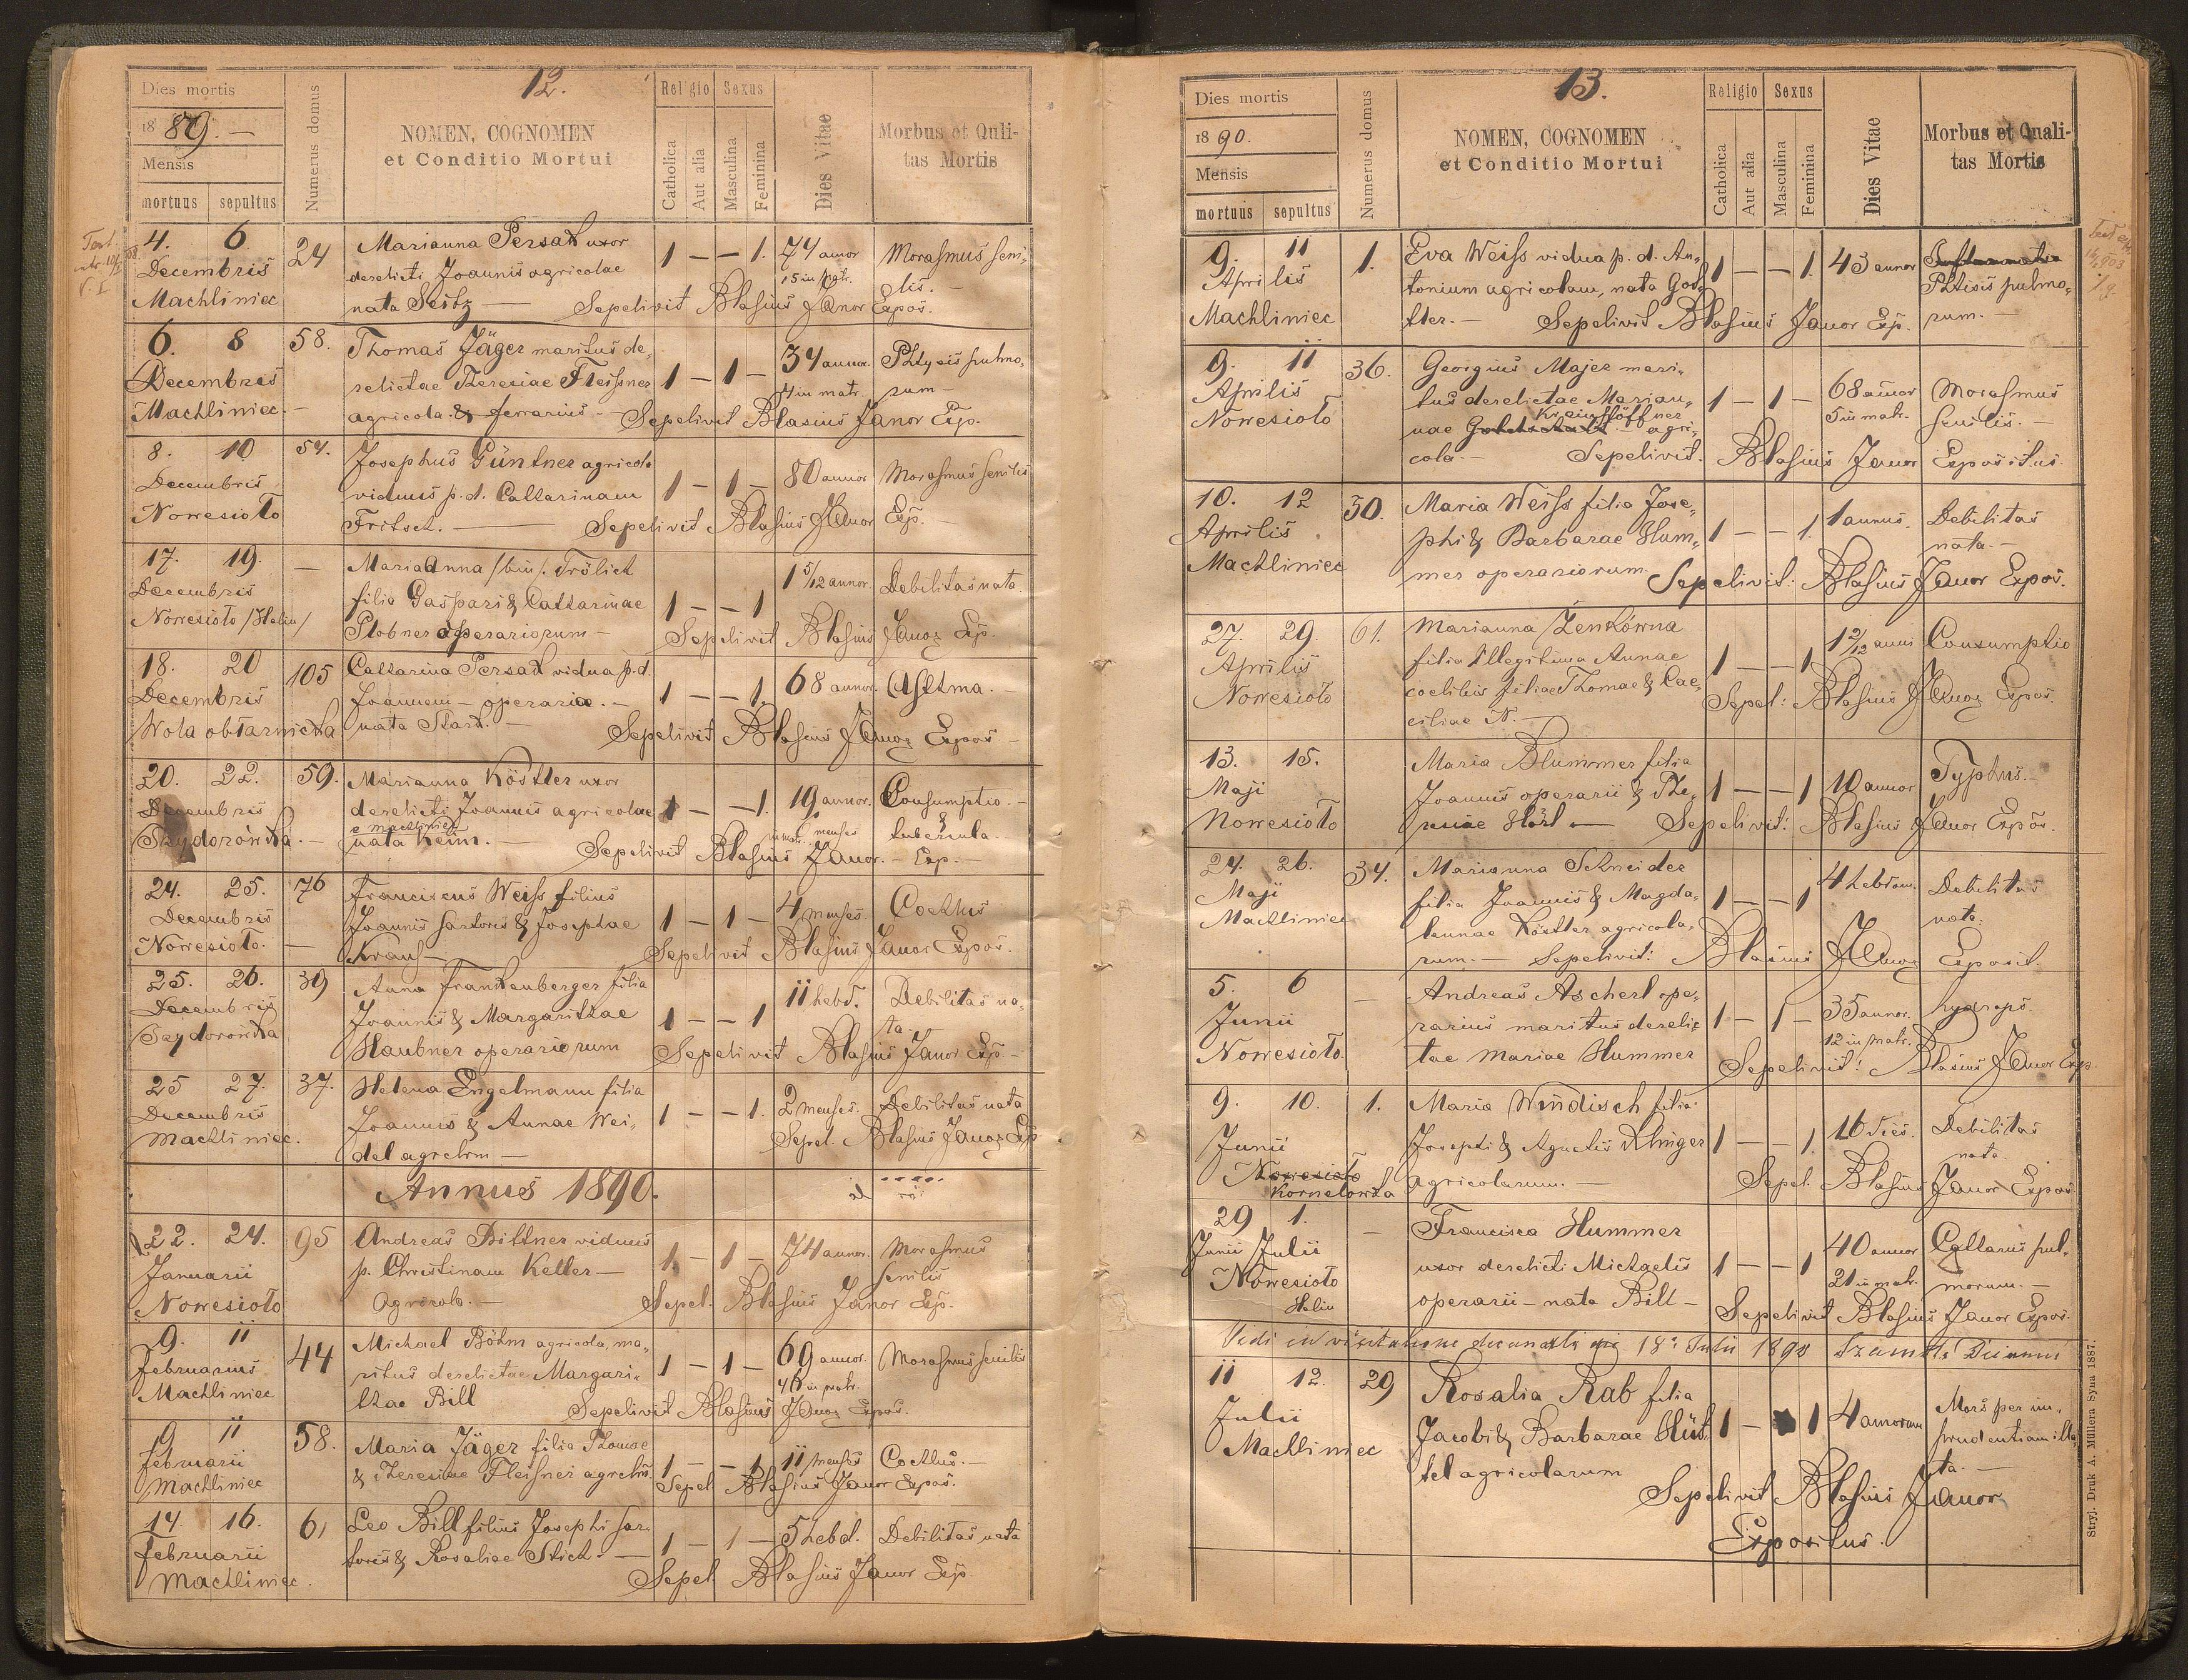 12.
Dies mortis
1889. —
Mensis
mortuus sepultus
Numerus domus
NOMEN, COGNOMEN
et Conditio Mortui
Religio
Catholica
Aut alia
Sexus
Masculina
Feminina
Dies Vitae
Morbus et Quli-
tas Mortis
4. 6 24 Marianna Persak uxor 1 — — 1. 74 annor Morasmus seni-
Decembris derelicti Joannis agricolae 15 in matr. lis. —
Machliniec nata Seitz — Sepelivit Blasius Janor Expos.
6. 8 58. Thomas Jäger maritus de- 1 — 1 — 34 annor. Phtysis pulmo-
Decembris relictae Theresiae Fleissner 4 in matr. rum —
Machliniec. — agricola & ferrarius — Sepelivit Blasius Janor Exp.
8. 10 54. Josephus Güntner agricola 1 — 1 — 80 annor Morasmus senilis
Decembris viduus p. d. Catharinam
Nowesioło Fritsch. — Sepelivit Blasius Janor Exp. —
17. 19. — Marianna /bin/. Frölich 1 — — 1 1 5/12 annor. Debilitas nata.
Decembris filia Gaspari & Catharinae
Nowesioło /Halin/ Plobner operariorum — Sepelivit Blasius Janor Exp.
18. 20 105 Catharina Persak vidua p. d. 1 — — 1. 68 annor. Asthma. —
Decembris Joannem — operaria. —
Wola obłaznicka nata Stark. — Sepelivit Blasius Janor Expos —
20. 22. 59. Marianna Köstler uxor 1 — — 1. 19 annor. Consumptio. —
Decembris derelicti Joannis agricolae & tubercula. —
e Machliniec
Szydorówka. — nata Keim. — Sepelivit Blasius Janor. — Exp. —
24. 25. 76 Franciscus Weiss filius 1 — 1 — 4 menses. Cocthus
Decembris Joannis sartoris & Josephae
Nowesioło. — Kraus — Sepelivit Blasius Janor Expos.
25. 26. 39 Anna Frankenberger filia 1 — — 1 11 hebd. Debilitas na-
Decembris Joannis & Margarithae ta. —
Szydorowka Haubner operariorum Sepelivit Blasius Janor Exp. —
25 27. 37. Helena Engelmann filia 1 — — 1. 2 menses. Debilitas nata
Decembris Joannis & Annae Wei-
Machliniec. del agrclrm — Sepel. Blasius Janor Exp
Annus 1890.
22. 24. 95 Andreas Bittner viduus 1. — 1 — 74 annor. Morasmus
Januarii p. Christinam Keller — senilis
Nowesioło Agricola. — Sepel. Blasius Janor Exp.
9. 11 44 Michael Böhm agricola, ma- 1 — 1 — 69 annor. Morasmus senilis
Februarius ritus derelictae Margari- 46 in matr.
Machliniec thae Bill Sepelivit Blasius Janor Expos.
9 11 58. Maria Jäger filia Thomae 1 — — 1 11 menses Cocthus. —
Februarii & Theresiae Fleisner agrclrm.
Machliniec Sepel Blasius Janor Expos.
14. 16. 61 Leo Bill filius Josephi sar- 1 — 1 — 5 hebd. Debilitas nata
Februarii toris & Rosaliae Stich. —
Machliniec. Sepel Blasius Janor Exp.
13.
Dies mortis
1890.
Mensis
mortuus sepultus
Numerus domus
NOMEN, COGNOMEN
et Conditio Mortui
Religio
Catholica
Aut alia
Sexus
Masculina
Feminina
Dies Vitae
Morbus et Quali-
tas Mortis
9. 11 1. Eva Weiss vidua p. d. An- 1 — — 1. 43 annor
Aprilis tonium agricolam, nata Got- Phtisis pulmo-
Machliniec tter. — Sepelivit Blasius Janor Exp. rum. —
9. 11 36. Georgius Majer mari- 1 — 1 — 68 annor Morasmus
Aprilis tus derelictae Marian- 5 in matr. senilis. —
Nowesioło nae — agri-
cola. — Sepelivit. Blasius Janor Expositus.
10. 12 50. Maria Weiss filia Jose- 1 — — 1. 1 annus. Debilitas
Aprilis phi & Barbarae Hum- nata. —
Machliniec mer operariorum. Sepelivit: Blasius Janor Expos.
27. 29. 61. Marianna Zenkówna 1 — — 1 1 2/12 anni Consumptio
Aprilis filia Illegitima Annae
Nowesioło coelibis filiae Thomae & Cae- Sepel: Blasius Janor Expos.
ciliae N. —
13. 15. Maria Blummer filia 1 — — 1 10 annor Typhus. —
Maji Joannis operarii & The-
Nowesioło resiae Hörl — Sepelivit: Blasius Janor Expos.
24. 26. 34. Marianna Schneider 1 — — 1 4 hebdom. Debilitas
Maji filia Joannis & Magda- nata.
Machliniec lennae Köstler agricola-
rum. — Sepelivit: Blasius Janor Exposit.
5. 6 — Andreas Ascherl ope- 1 — 1 — 35 annor. hydrops.
Junii rarius maritus dereli- 12 in matr.
Nowesioło. tae Mariae Hummer Sepelivit: Blasius Janor Exp.
9. 10. 1. Maria Windisch filia 1 — — 1. 16 dies. Debilitas
Junii Josephi & Agnetis Klinger nata.
Nowesioło
Kornelowka agricolarum. — Sepel. Blasius Janor Expos
29 1. — Francisca Hummer 1 — — 1 40 annor Catharus pul-
Junii Julii uxor derelicti Michaelis 21 in matr. morum. —
Nowesioło operarii — nata Bill —
Halin Sepelivit Blasius Janor Expos.
Vidi in visitatione decanali die 18. Julii 1890
11 12. 29 Rosalia Rab filia 1 — 1 4 annorum Mors per im-
Julii Jacobi & Barbarae Hüt- prudentiam illa-
Machliniec tel agricolarum ta. —
Sepelivit Blasius Janor
Expositus.
Stryj. Druk A. Müllera Syna 1887.